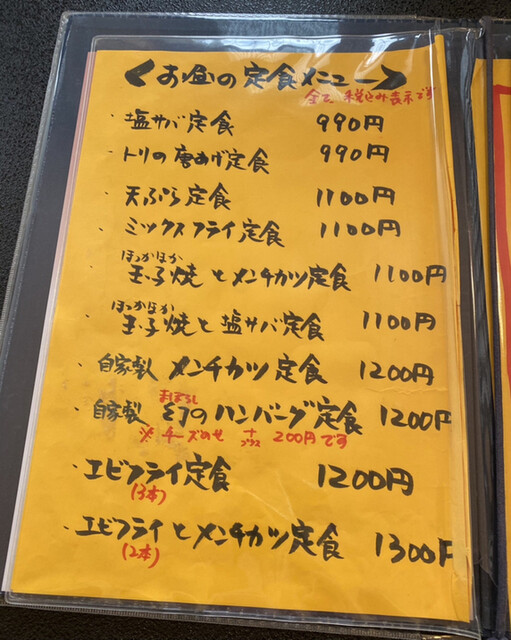 <お昼の定食メニュー>
全て税込み表示です
・塩サバ定食 990円
・トリの唐あげ定食 990円
・天ぷら定食 1100円
・ミックスフライ定食 1100円
ほっかほか
・玉子焼とメンチカツ定食 1100円
ほっかほか
・玉子焼と塩サバ定食 1100円
・自家製 メンチカツ定食 1200円
まぼろし
・自家製 幻のハンバーグ定食 1200円
※チーズのせ プラス 200円です
・エビフライ定食 1200円
(3本)
・エビフライとメンチカツ定食 1300円
(2本)